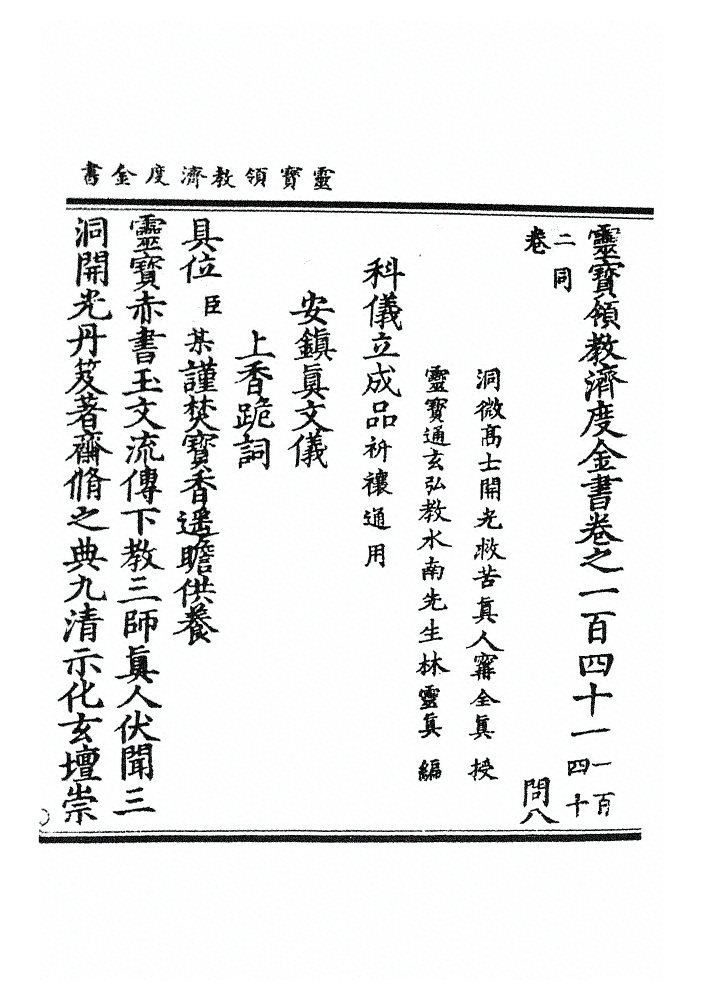 靈寶領教濟度金書
靈寶領教濟度金書卷之一百四十一一百四十
二同卷
問八
洞微高士開光救苦眞人甯全眞授
靈寶通玄弘教水南先生林靈眞編
科儀立成品祈禳通用
安鎭眞文儀
上香跪詞
具位臣某謹焚寶香遥瞻供養
靈寶赤書玉文流傳下教三師眞人伏聞三
洞開光丹笈著齋脩之典九清示化玄壇崇